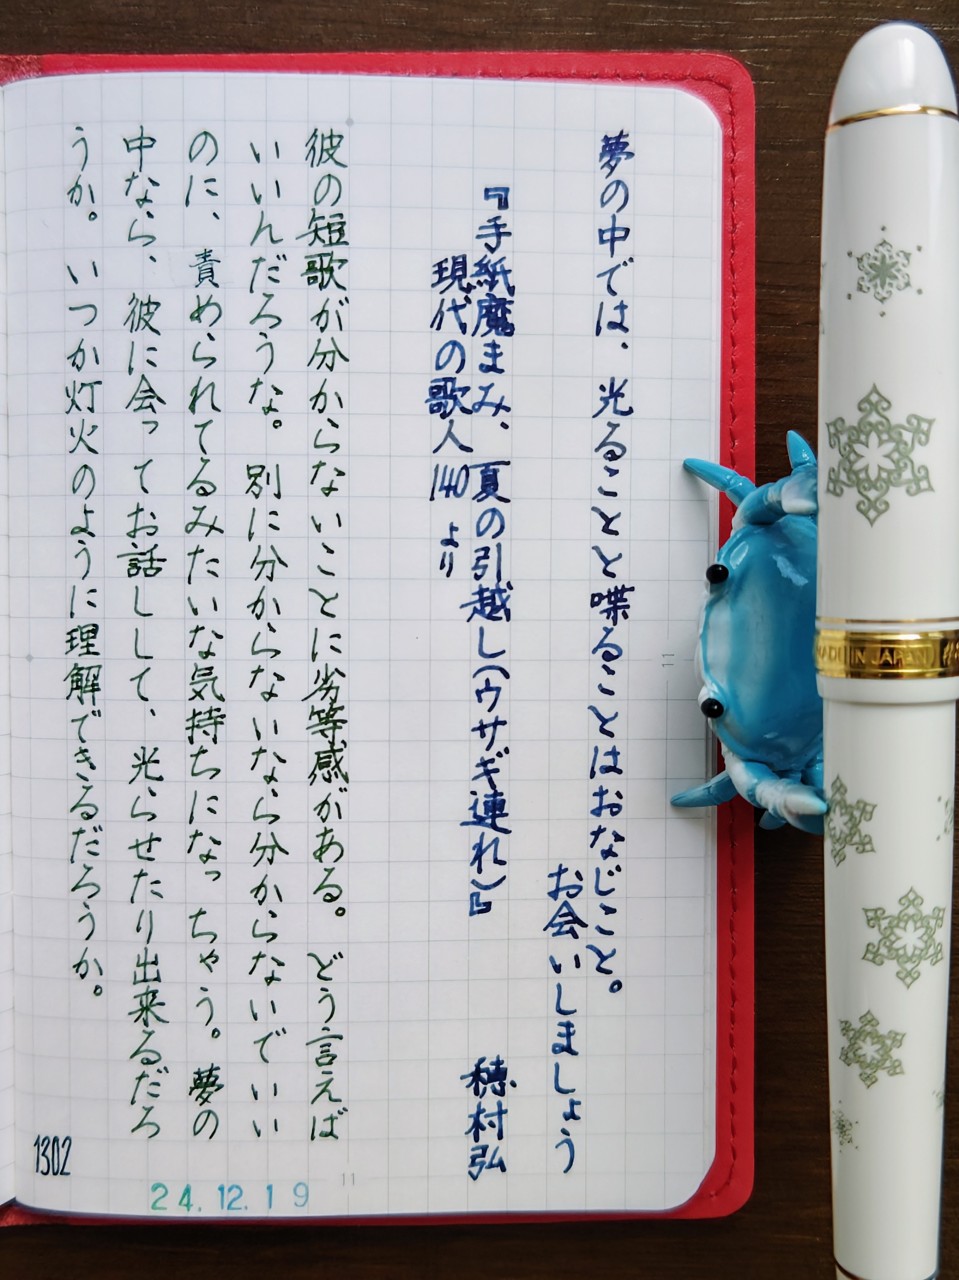 夢の中では、光ることと喋ることはおなじこと。
お会いしましょう
『手紙魔まみ、夏の引越し(ウサギ連れ)』
穂村弘
現代の歌人140より
彼の短歌が分からないことに劣等感がある。どう言えば
いいんだろうな。別に分からないなら分からないでいい
のに、責められてるみたいな気持ちになっちゃう。夢の
中なら、彼に会ってお話しして、光らせたり出来るだろ
うか。いつか灯火のように理解できるだろうか。
1302
24.12.19
11
11
MADE IN JAPAN